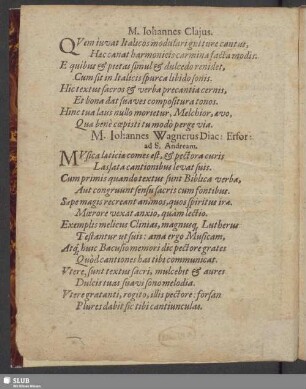 M. Iohannes Clajus.
QVem iuvat Italicos modulari gnituèr cantus,
Hæc canat harmonicis carmina facta modis.
E quibus & pietas simul & dulcedo renidet,
Cum sit in Italicis spurca libido sonis.
Hic textus sacros & verba precantia cernis,
Et bona dat suaves compositura tonos.
Hinc tua laus nullo morietur, Melchior, ævo,
Qua benè cœpisti tu modò perge via.
M. Iohannes Wagnerus Diac: Erfor:
ad S. Andream.
MVsica laticiæ comes est, & pectora curis
Lassata cantionibus levat suis.
Cum primis quando textus sunt Biblica verba,
Aut congruunt sensu sacris cum fontibus.
Sæpe magis recreant animos, quos spiritus iræ
Mœrore vexat anxio, quàm lectio.
Exemplis melicus Cliniæ, magnusq́; Lutherus
Testantur ut suis: ama ergo Musicam,
Atq́; huic Bacusio memori dic pectore grates
Quòd cantiones has tibi communicat.
Vtere, sunt textus sacri, mulcebit & aures
Dulcis tuas suavi sono melodia.
Vtere gratanti, rogito, illis pectore: forsan
Plures dabit sic tibi cantiunculas.
SLUB
Wir führen Wissen.